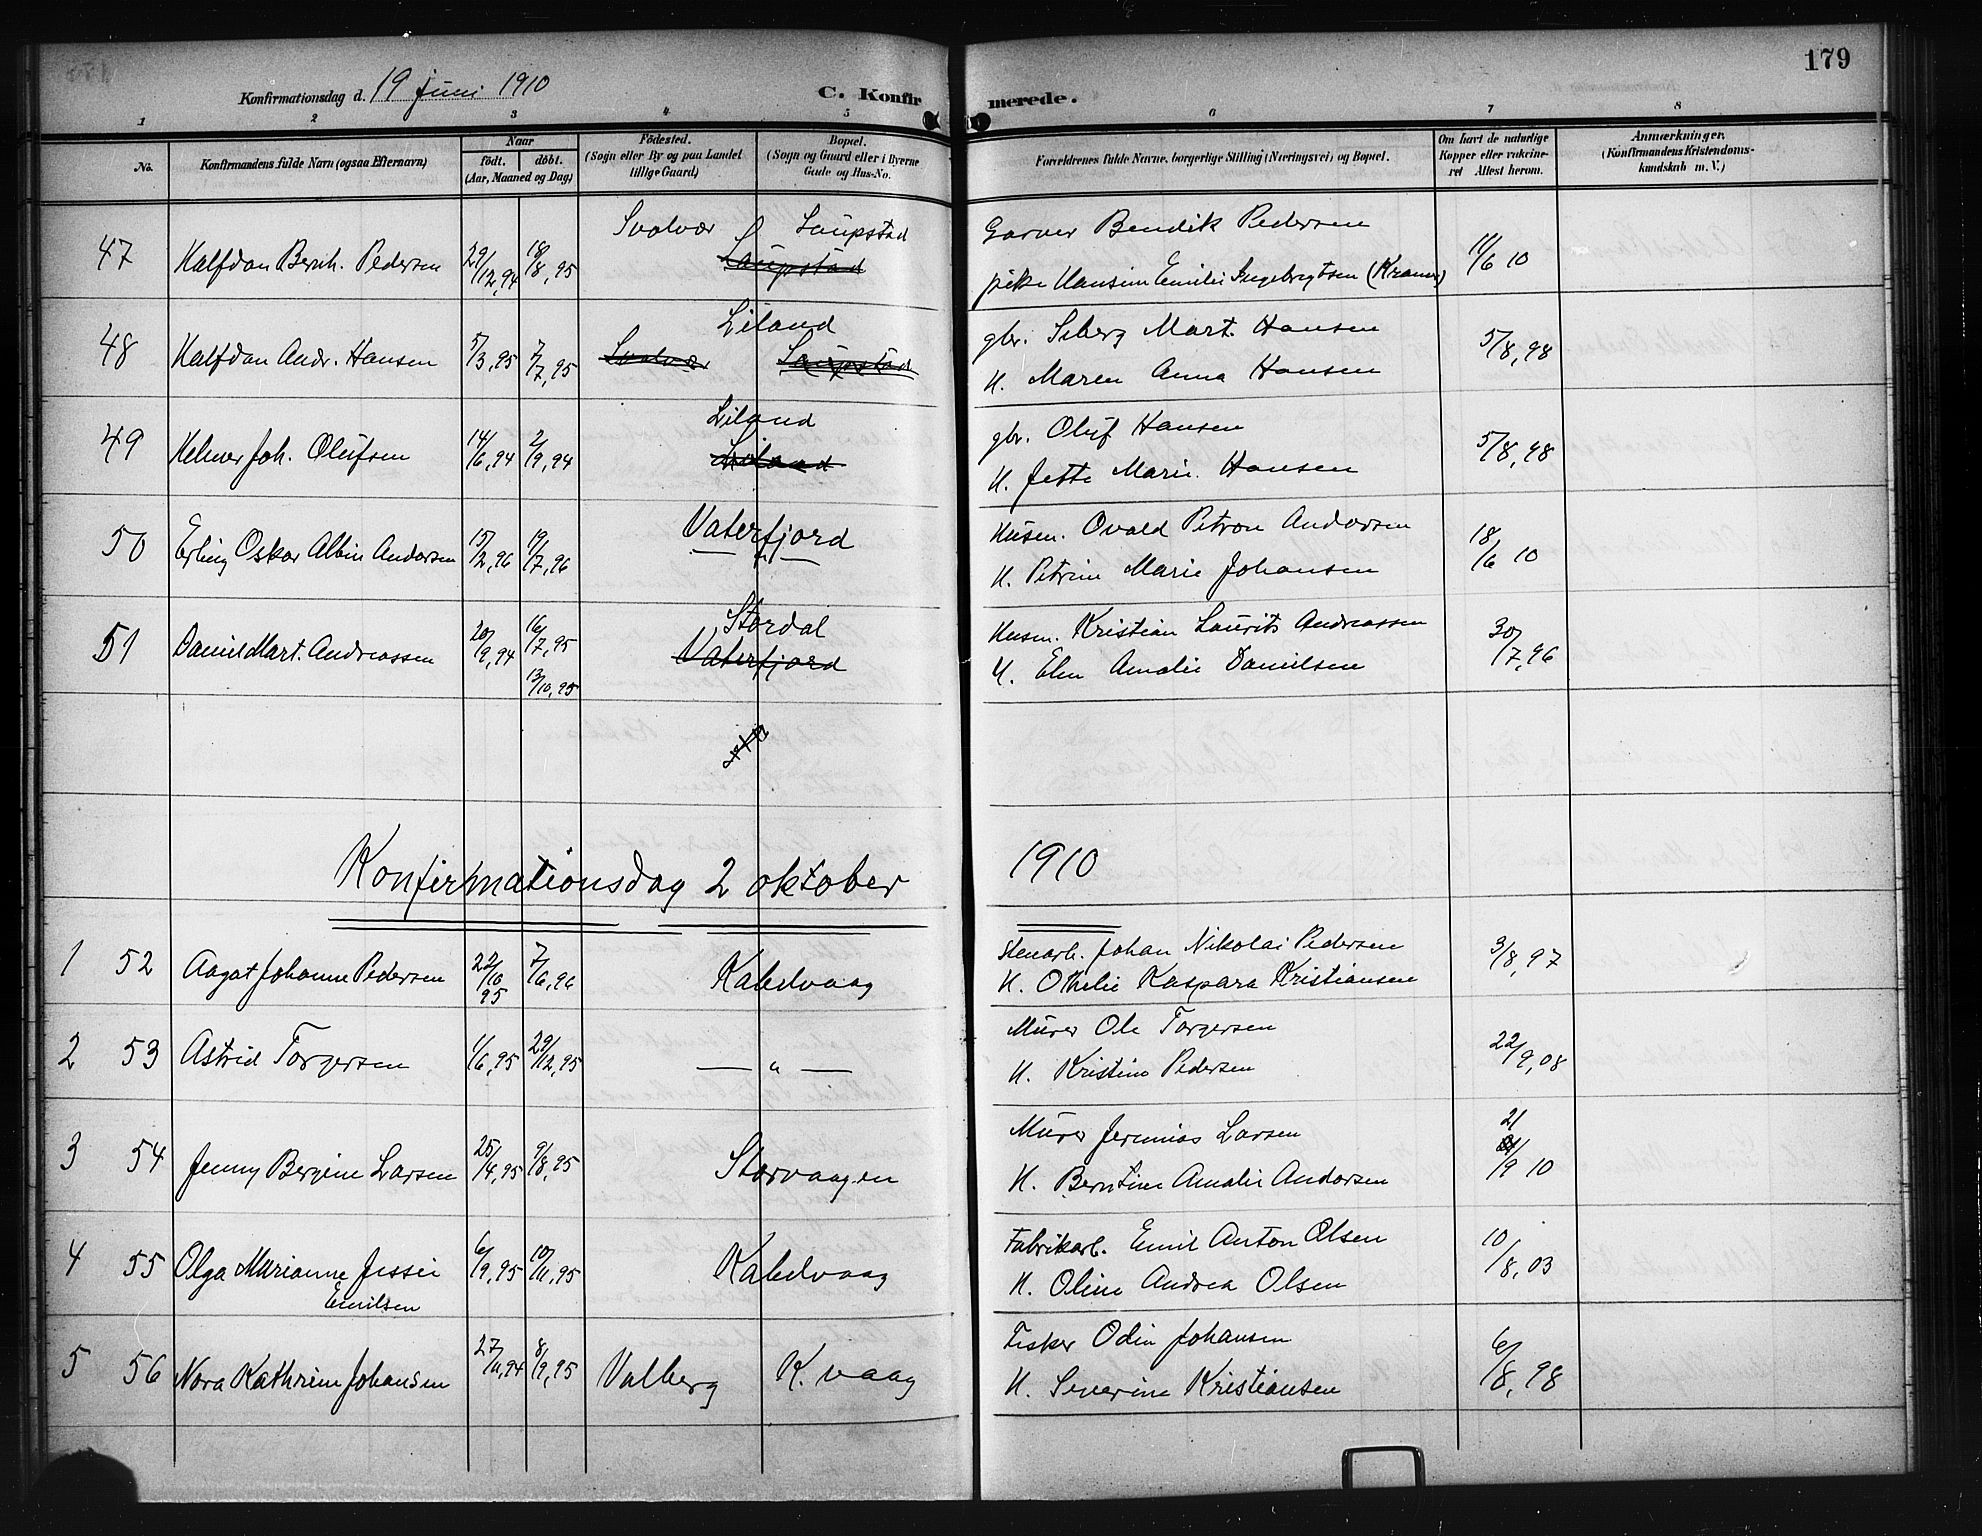 179
Konfirmationsdag d. 19 juni 1910
C. Konfirmerede.
1 2 3 4 5 6 7 8
No.
Konfirmandens fulde Navn (ogsaa Efternavn)
Naar
født. døbt.
(Aar, Maaned og Dag)
Fødested.
(Sogn eller By og paa Landet
tillige Gaard)
Bopæl.
(Sogn og Gaard eller i Byerne
Gade og Hus-No.
Forældrenes fulde Navne, borgerlige Stilling (Næringsvei) og Bopæl.
Om havt de naturlige
Kopper eller vakcine-
ret Attest herom.
Anmærkninger.
(Konfirmandens Kristendoms-
kundskab m. V.)
47 Halfdan Bernh. Pedersen 29/12,94 18/8,95 Svolvær Laupstad
Laupstad
Garver Bendik Pedersen
pike Hansine Emilie Ingebrigtsen (Kramer) 11/6 10
48 Halfdan Andr. Hansen 5/3,95 7/7,95 Liland
Svolvær Laupstad
gbr. Seberg Mart. Hansen
H. Maren Anna Hansen 5/8,98
49 Helmer Joh. Olufsen 14/6,94 2/9,94 Liland
Liland
gbr. Oluf Hansen
H. Jette Marie Hansen 5/8,98
50 Erling Oskar Albin Andersen 15/2,96 19/7,96 Vaterfjord
Husm. Ovald Petron Andersen
H. Petrine Marie Johansen 18/6 10
51 Daniel Mart. Andreassen 20/9,94 16/7,95 13/10,95 Stordal
Vaterfjord
Husm. Kristian Laurits Andreassen
H. Elen Amalie Danielsen 30/7,96
Konfirmationsdag 2 oktober 1910
1 52 Aagot Johanne Pedersen 22/10 95 7/6,96 Kabelvaag
Stenarb. Johan Nikolai Pedersen
H. Othelie Kaspara Kristiansen 3/8,97
2 53 Astrid Torgersen 1/6,95 29/12,95 — " —
Murer Ole Torgersen
H. Kristine Pedersen 22/9,08
3 54 Jenny Bergine Larsen 25/4,95 9/8,95 Storvaagen
Murer Jeremias Larsen
H. Berntine Amalie Andersen 21/9 10
4 55 Olga Marianne Jessie
Emilsen 6/9,95 10/11,95 Kabelvaag
Fabrikarb. Emil Anton Olsen
H. Oline Andrea Olsen 10/8,03
5 56 Nora Kathrine Johansen 27/11,94 8/9,95 Valberg K.vaag
Fisker Odin Johansen
H. Severine Kristiansen 6/8,98